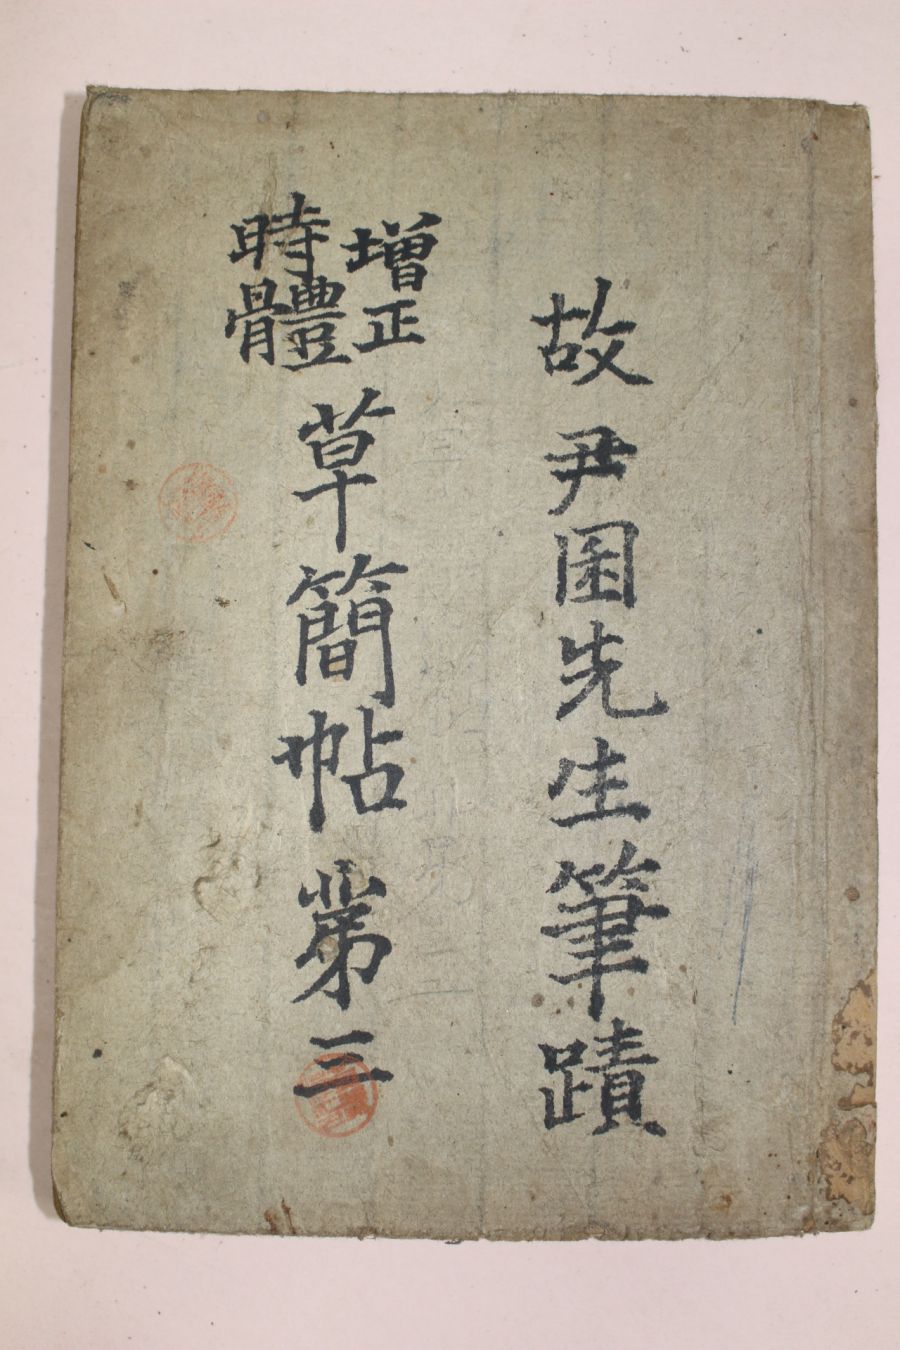 故尹困先生筆蹟
增正
時體
草簡帖第三